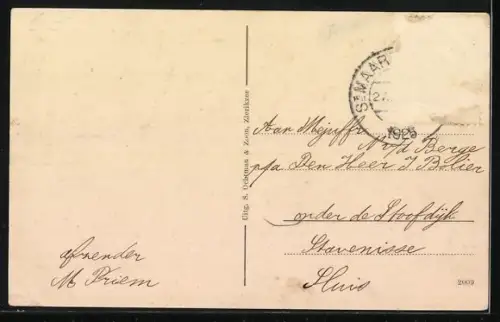 St MAAR
27
1925
Aan Mejuffr
N v/d Berge
p/a Den Heer J Bolier
onder de Stoofdijk
Stavenisse
Huis
afzender
M Priem
Uitg. S. Ochtman & Zoon, Zierikzee